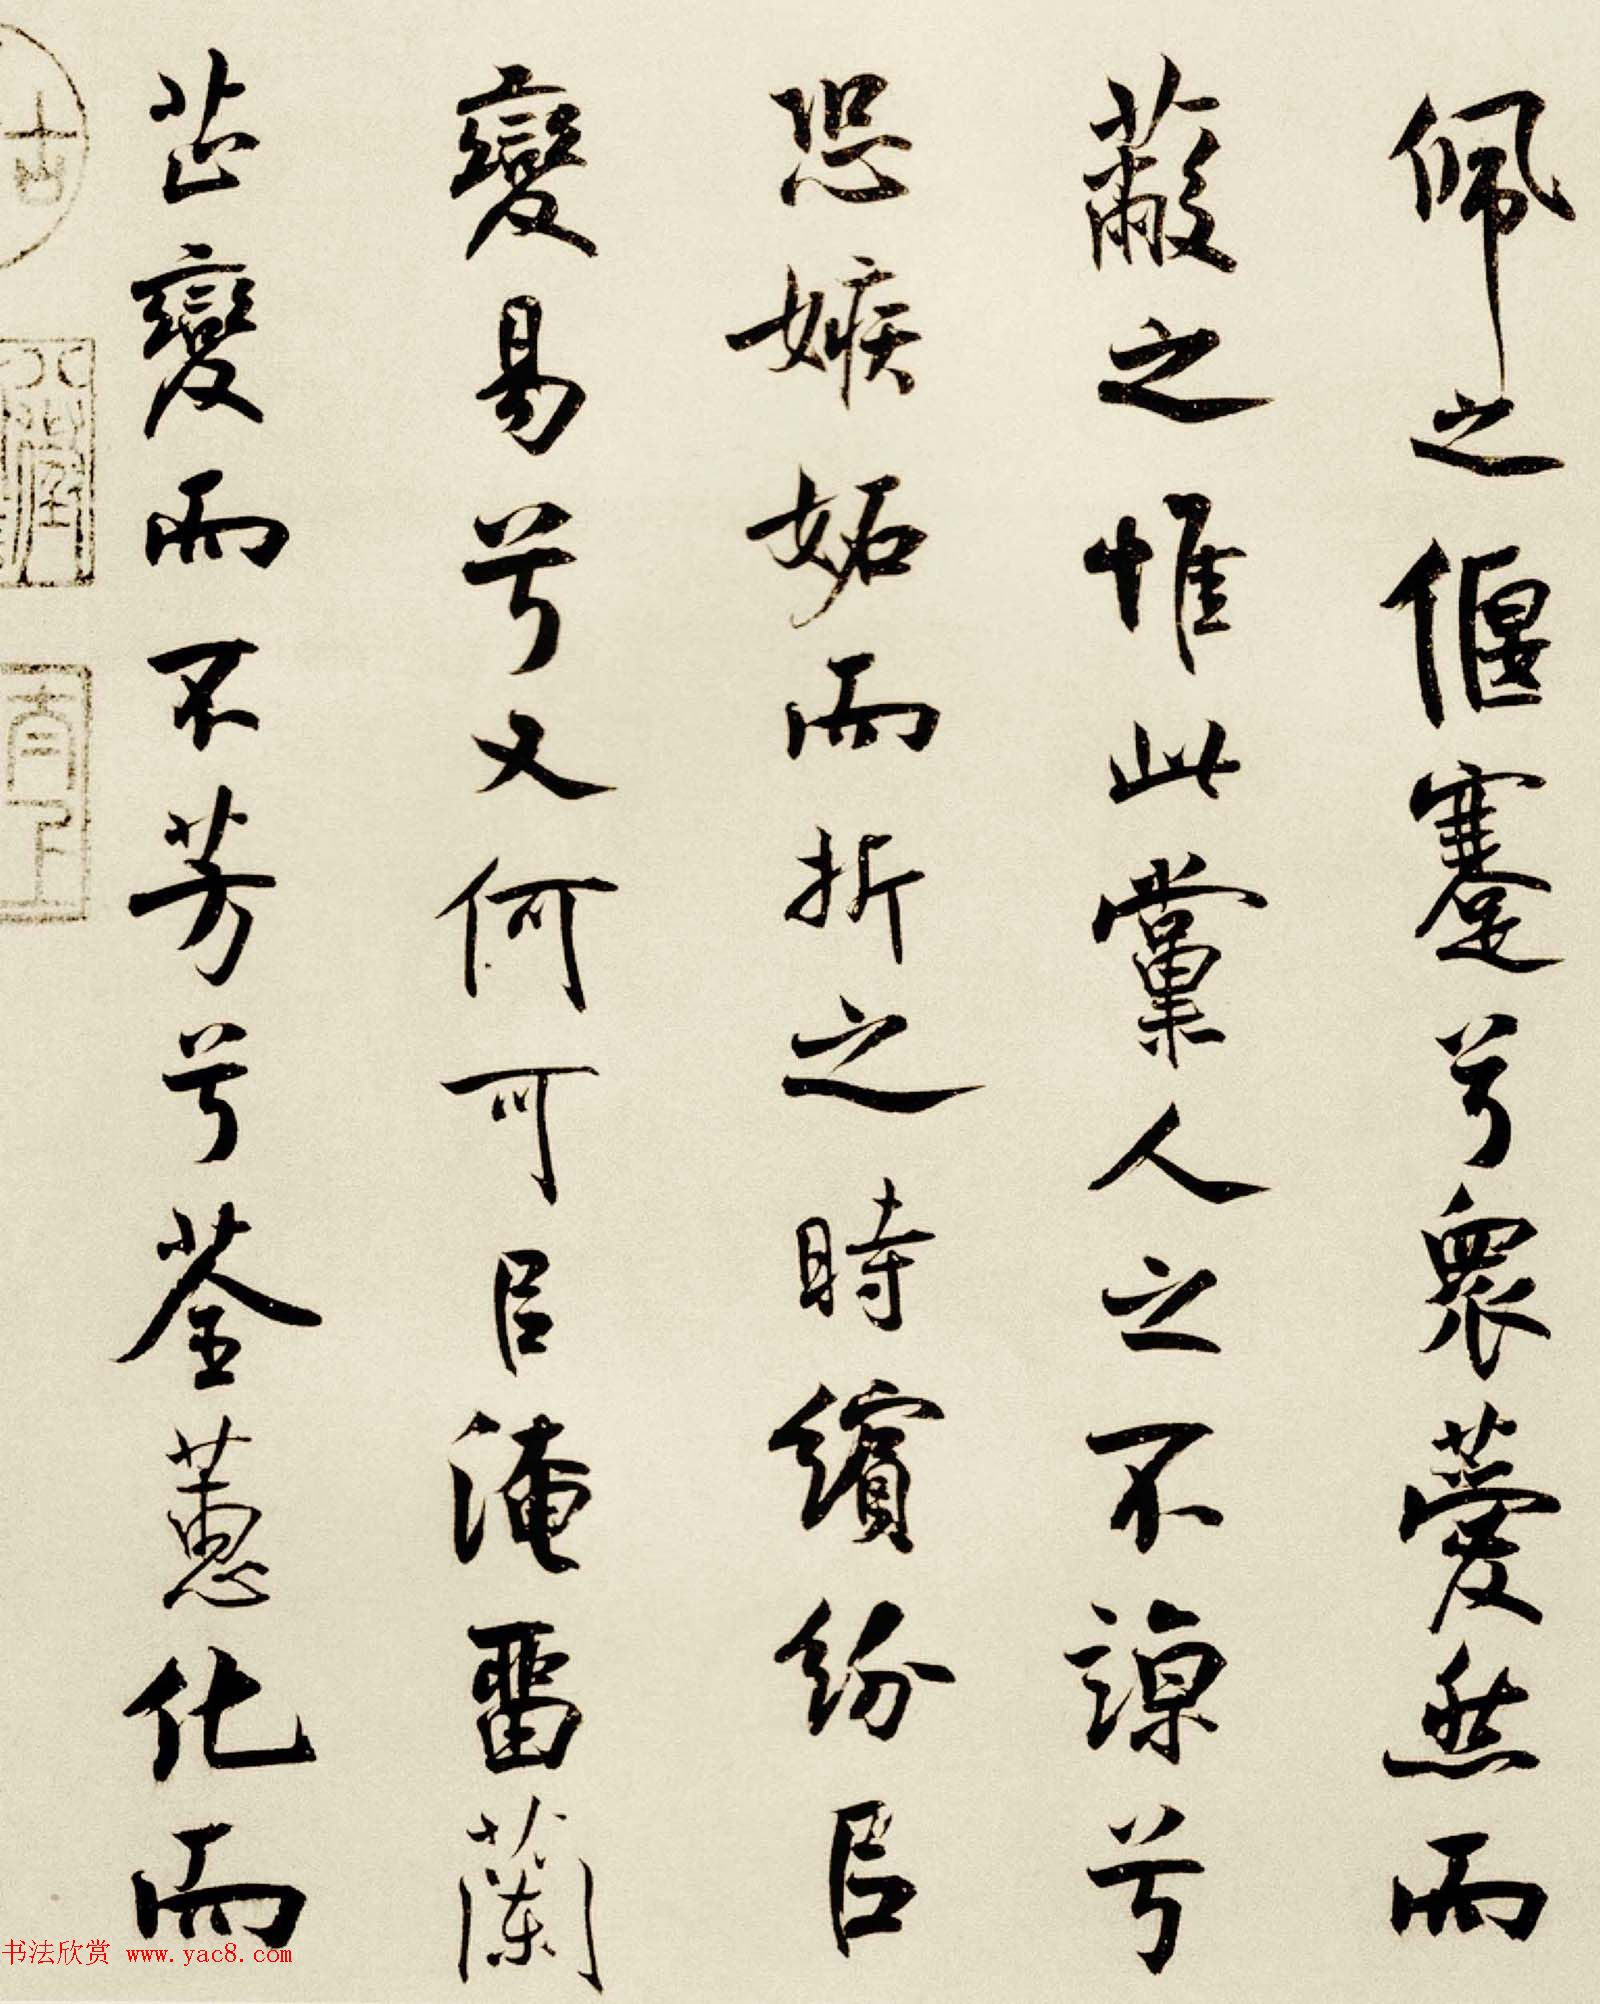 佩之偃蹇兮眾薆然而
蔽之惟此黨人之不諒兮
恐嫉妬而折之時繽紛㠯
變易兮又何可㠯淹畱蘭
芷變而不芳兮荃蕙化而
书法欣赏 www.yac8.com